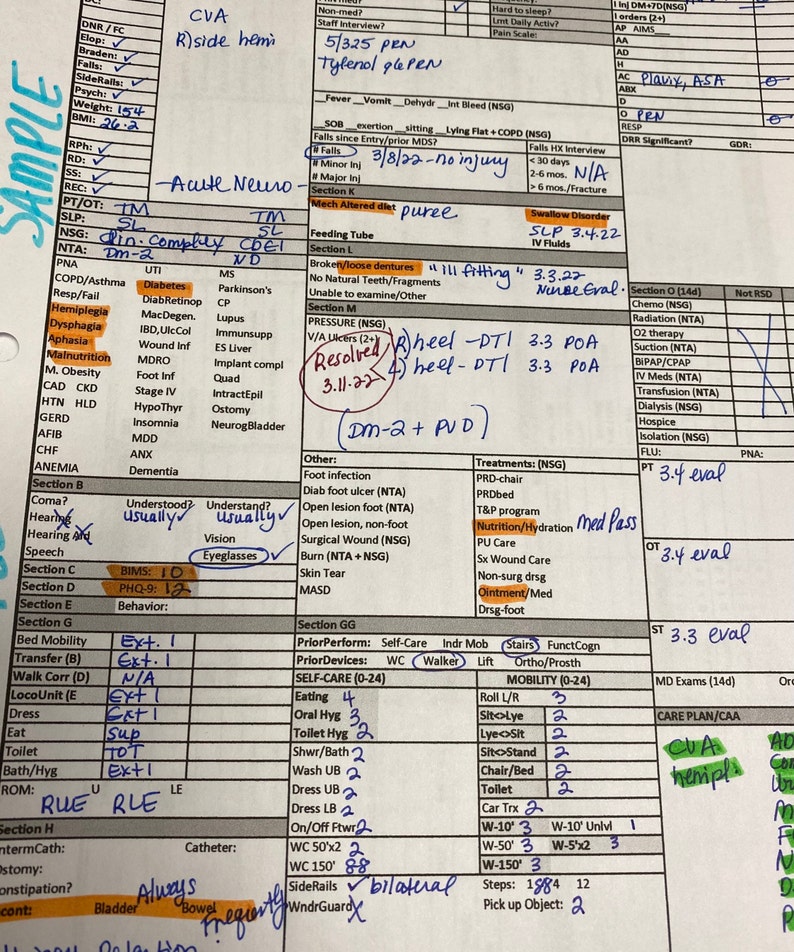 SAMPLE
DNR / FC
Elop: ✓
Braden: ✓
Falls: ✓
SideRails: ✓
Psych: ✓
Weight: 154
BMI: 26.2
RPh: ✓
RD: ✓
SS: ✓
REC: ✓
CVA
R) side hemi
-Acute Neuro-
PT/OT: TM TM
SLP: SL SL
NSG: Clin. Complex CDE1
NTA: Dm-2 ND
PNA
COPD/Asthma
Resp/Fail
Hemiplegia
Dysphagia
Aphasia
Malnutrition
M. Obesity
CAD CKD
HTN HLD
GERD
AFIB
CHF
ANEMIA
UTI
Diabetes
DiabRetinop
MacDegen.
IBD,UlcCol
Wound Inf
MDRO
Foot Inf
Stage IV
HypoThyr
Insomnia
MDD
ANX
Dementia
MS
Parkinson's
CP
Lupus
Immunsupp
ES Liver
Implant compl
Quad
IntractEpil
Ostomy
NeurogBladder
Section B
Coma? Understood? Understand?
Hearing usually ✓ usually ✓
Hearing Aid Vision
Speech Eyeglasses ✓
Section C BIMS: 10
Section D PHQ-9: 12
Section E Behavior:
Section G
Bed Mobility Ext. 1
Transfer (B) Ext. 1
Walk Corr (D) N/A
LocoUnit (E Ext 1
Dress Ext 1
Eat Sup
Toilet TOT
Bath/Hyg Ext 1
ROM: U LE
RUE RLE
Section H
ntermCath: Catheter:
Ostomy:
onstipation? Always
cont: Bladder Bowel Frequently
Non-med? ✓
Staff Interview?
Hard to sleep?
Lmt Daily Activ?
Pain Scale:
5/325 PRN
Tylenol q6 PRN
__Fever __Vomit __Dehydr __Int Bleed (NSG)
__SOB __exertion __sitting __Lying Flat + COPD (NSG)
Falls since Entry/prior MDS? Falls HX Interview
# Falls 3/8/22 - no injury < 30 days
# Minor Inj 2-6 mos. N/A
# Major Inj > 6 mos./Fracture
Section K
Mech Altered diet puree Swallow Disorder
SLP 3.4.22
Feeding Tube IV Fluids
Section L
Broken/loose dentures "ill fitting" 3.3.22
No Natural Teeth/Fragments Nurse Eval.
Unable to examine/Other
Section M
PRESSURE (NSG)
V/A Ulcers (2+) R) heel - DTI 3.3 POA
Resolved L) heel - DTI 3.3 POA
3.11.22
(Dm-2 + PVD)
Other:
Foot infection
Diab foot ulcer (NTA)
Open lesion foot (NTA)
Open lesion, non-foot
Surgical Wound (NSG)
Burn (NTA + NSG)
Skin Tear
MASD
Treatments: (NSG)
PRD-chair
PRDbed
T&P program
Nutrition/Hydration med Pass
PU Care
Sx Wound Care
Non-surg drsg
Ointment/Med
Drsg-foot
Section GG
PriorPerform: Self-Care Indr Mob Stairs FunctCogn
PriorDevices: WC Walker Lift Ortho/Prosth
SELF-CARE (0-24) MOBILITY (0-24)
Eating 4 Roll L/R 3
Oral Hyg 3 Sit<>Lye 2
Toilet Hyg 2 Lye<>Sit 2
Shwr/Bath 2 Sit<>Stand 2
Wash UB 2 Chair/Bed 2
Dress UB 2 Toilet 2
Dress LB 2 Car Trx 2
On/Off Ftwr 2 W-10' 3 W-10' Unlvl 1
WC 50'x2 2 W-50' 3 W-5'x2 3
WC 150' 88 W-150' 3
SideRails ✓ bilateral Steps: 1 88 4 12
WndrGuard X Pick up Object: 2
I Inj DM+7D(NSG)
I orders (2+)
AP AIMS___
AA
AD
H
AC Plavix, ASA
ABX
D
O PRN
RESP
DRR Significant? GDR:
Section O (14d) Not RSD
Chemo (NSG)
Radiation (NTA)
O2 therapy
Suction (NTA)
BiPAP/CPAP
IV Meds (NTA)
Transfusion (NTA)
Dialysis (NSG)
Hospice
Isolation (NSG)
FLU: PNA:
PT 3.4 eval
OT 3.4 eval
ST 3.3 eval
MD Exams (14d)
CARE PLAN/CAA
CVA
hemipl.